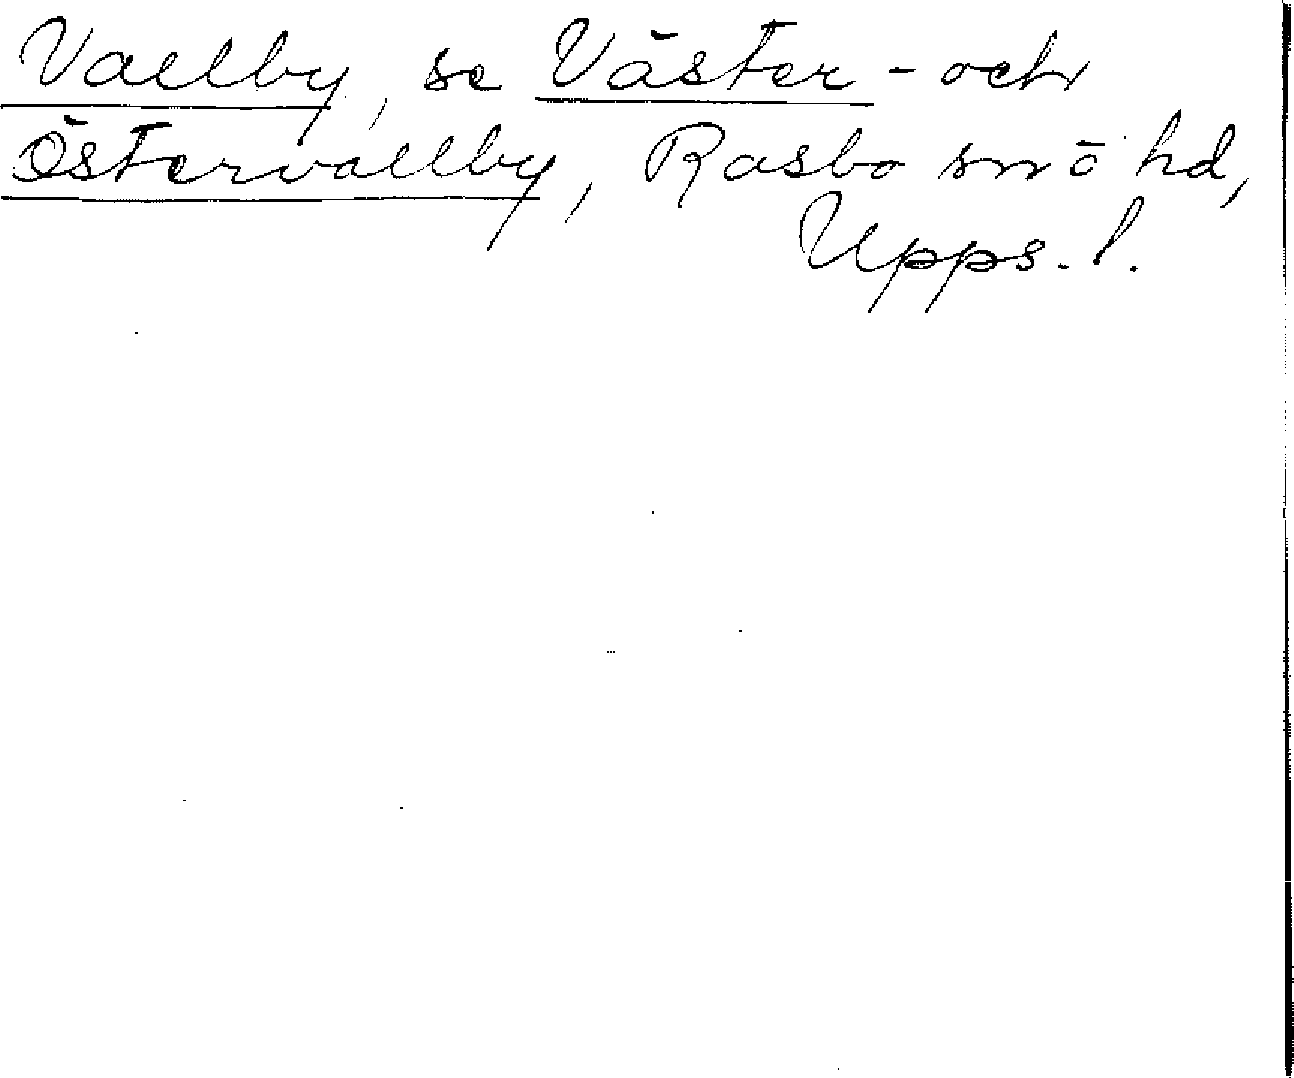 Vallby, se Väster- och
Östervallby, Rasbo sn o hd,
Upps. l.